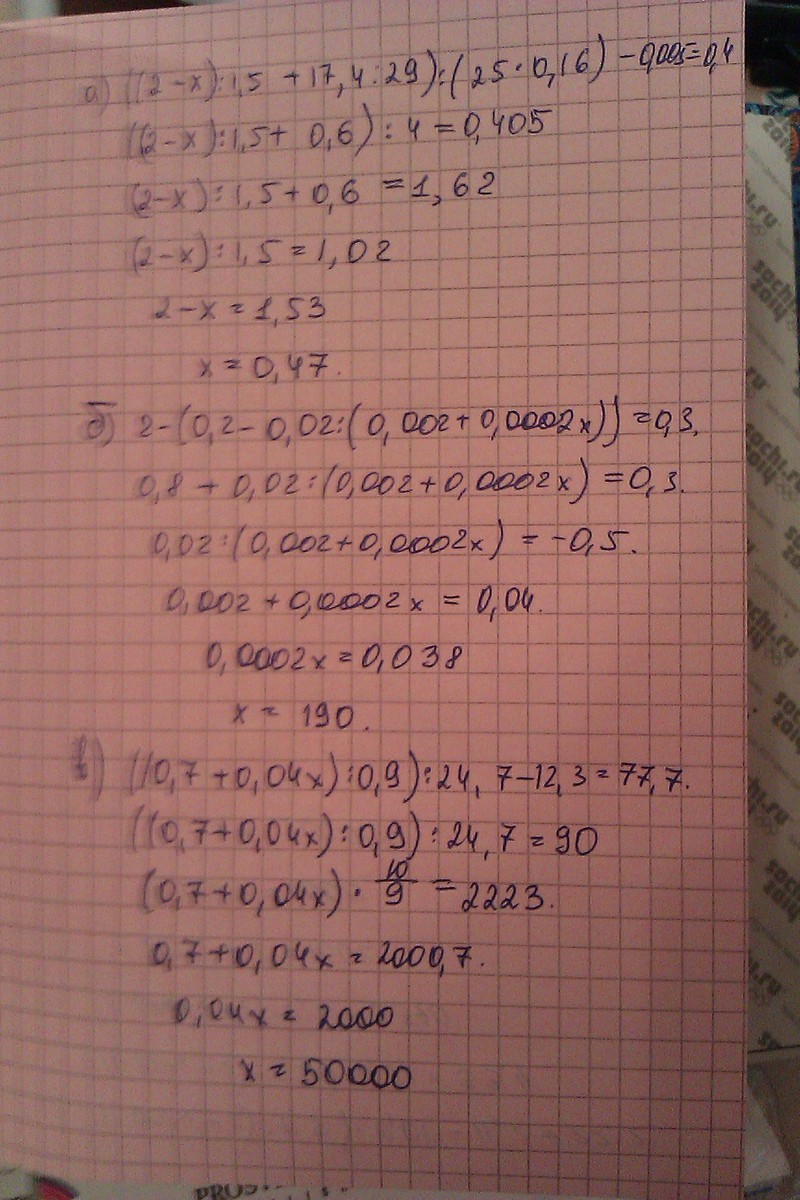 а) ((2-x):1,5 +17,4:29):(25·0,16) -0,005=0,4
((2-x):1,5+ 0,6):4=0,405
(2-x):1,5+0,6 =1,62
(2-x):1,5=1,02
2-x=1,53
x=0,47.
б) 2-(0,2-0,02:(0,002+0,0002x))=0,3.
0,8+0,02:(0,002+0,0002x)=0,3.
0,02:(0,002+0,0002x) = -0,5.
0,002+0,0002x = 0,04.
0,0002x=0,038
x = 190.
в) ((0,7+0,04x):0,9):24,7-12,3=77,7.
((0,7+0,04x):0,9):24,7=90
(0,7+0,04x)·10/9=2223.
0,7+0,04x=2000,7.
0,04x = 2000
x = 50000
sochi.ru
2014
sochi.ru
2014
sochi.ru
2014